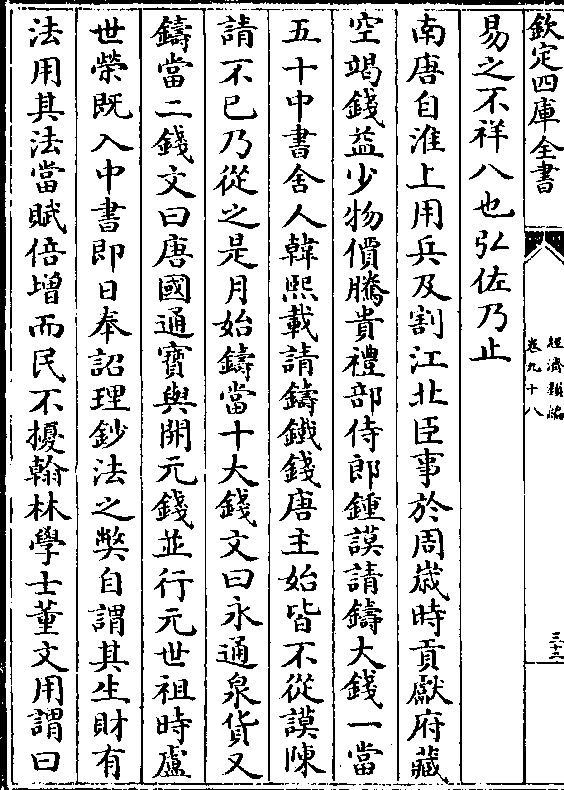 欽定四庫全書
經濟類編
卷九十八
三十二
易之不祥八也弘佐乃止
南唐自淮上用兵及割江北臣事於周歳時貢獻府藏
空竭錢益少物價騰貴禮部侍郎鍾謨請鑄大錢一當
五十中書舍人韓熙載請鑄鐵錢唐主始皆不從謨陳
請不已乃從之是月始鑄當十大錢文曰永通泉貨又
鑄當二錢文曰唐國通寳與開元錢並行元世祖時盧
世榮既入中書即日奉詔理鈔法之弊自謂其生財有
法用其法當賦倍增而民不擾翰林學士董文用謂曰